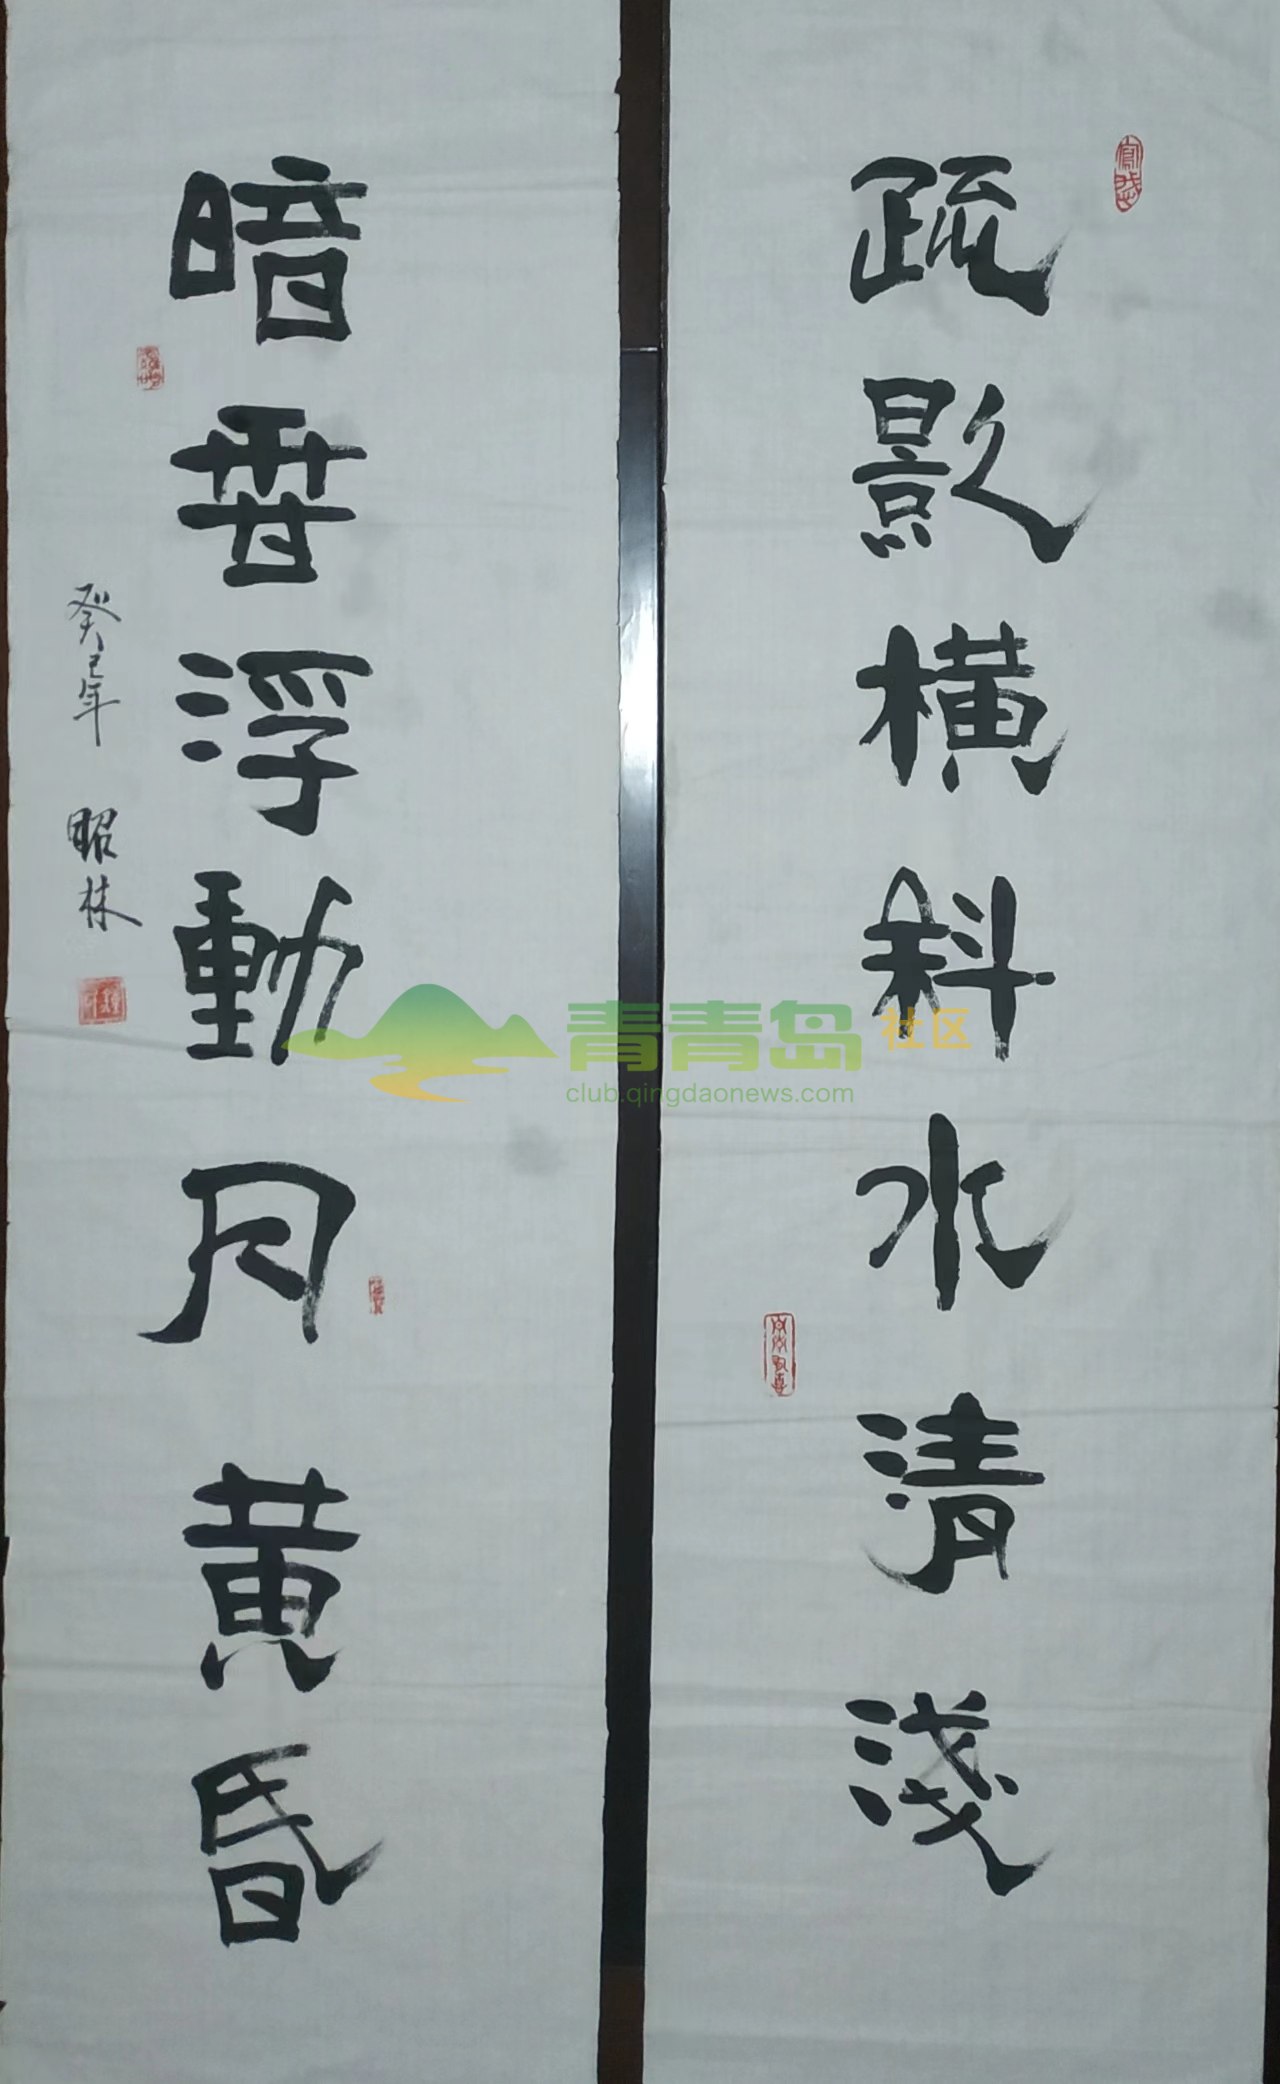 疏影橫斜水清淺
暗香浮動月黄昏
癸巳年 昭林
青青岛社区
club.qingdaonews.com